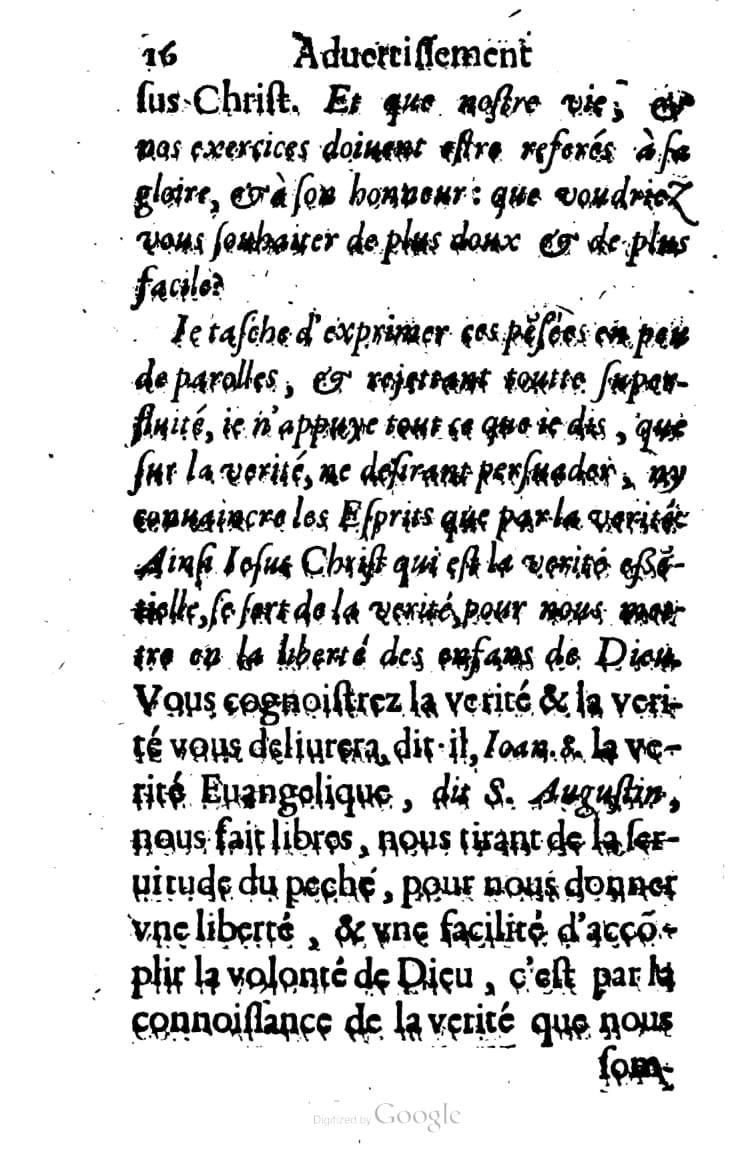 16 Aduertissement
sus-Christ. Et que nostre vie, &
nos exercices doiuent estre referés à sa
gloire, & à son honneur: que voudriez
vous souhaiter de plus doux & de plus
facile?
Ie tasche d'exprimer ces pẽsées en peu
de parolles, & rejettant toutte super-
fluité, ie n'appuye tout ce que ie dis, que
sur la verité, ne desirant persuader, ny
conuaincre les Esprits que par la verité
Ainsi Iesus Christ qui est la verité essẽ-
tielle, se sert de la verité, pour nous met-
tre en la liberté des enfans de Dieu.
Vous cognoistrez la verité & la veri-
té vous deliurera, dit-il, Ioan. 8. la ve-
rité Euangelique, dit S. Augustin,
nous fait libres, nous tirant de la ser-
uitude du peché, pour nous donner
vne liberté, & vne facilité d'accõ-
plir la volonté de Dieu, c'est par la
connoissance de la verité que nous
som-
Digitized by Google